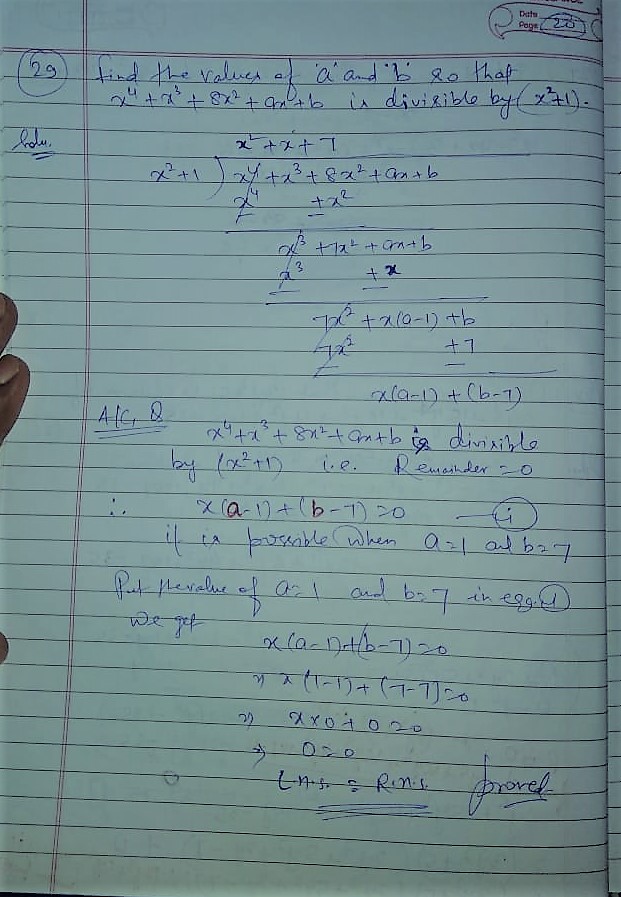 Date
Page 20
29 find the values of 'a' and 'b' so that
x⁴ + x³ + 8x² + ax + b is divisible by (x²+1).
Solu.
x² + x + 7
x²+1 ) x⁴ + x³ + 8x² + ax + b
x⁴ + x²
– –
x³ + 7x² + ax + b
x³ + x
– –
7x² + x(a-1) + b
7x² + 7
– –
x(a-1) + (b-7)
A/C, Q
x⁴ + x³ + 8x² + ax + b is divisible
by (x²+1) i.e. Remainder = 0
∴ x(a-1) + (b-7) = 0 — (i)
it is possible when a=1 and b=7
Put the value of a=1 and b=7 in eqn. (i)
we get
x(a-1)+(b-7)=0
⇒ x(1-1)+(7-7)=0
⇒ x×0+0=0
⇒ 0=0
L.H.S. = R.H.S. proved